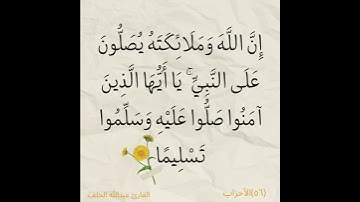 إِنَّ اللَّهَ وَمَلَائِكَتَهُ يُصَلُّونَ
عَلَى النَّبِيِّ ۚ يَا أَيُّهَا الَّذِينَ
آمَنُوا صَلُّوا عَلَيْهِ وَسَلِّمُوا
تَسْلِيمًا
(٥٦)الأحزاب
القارئ عبدالله الخلف